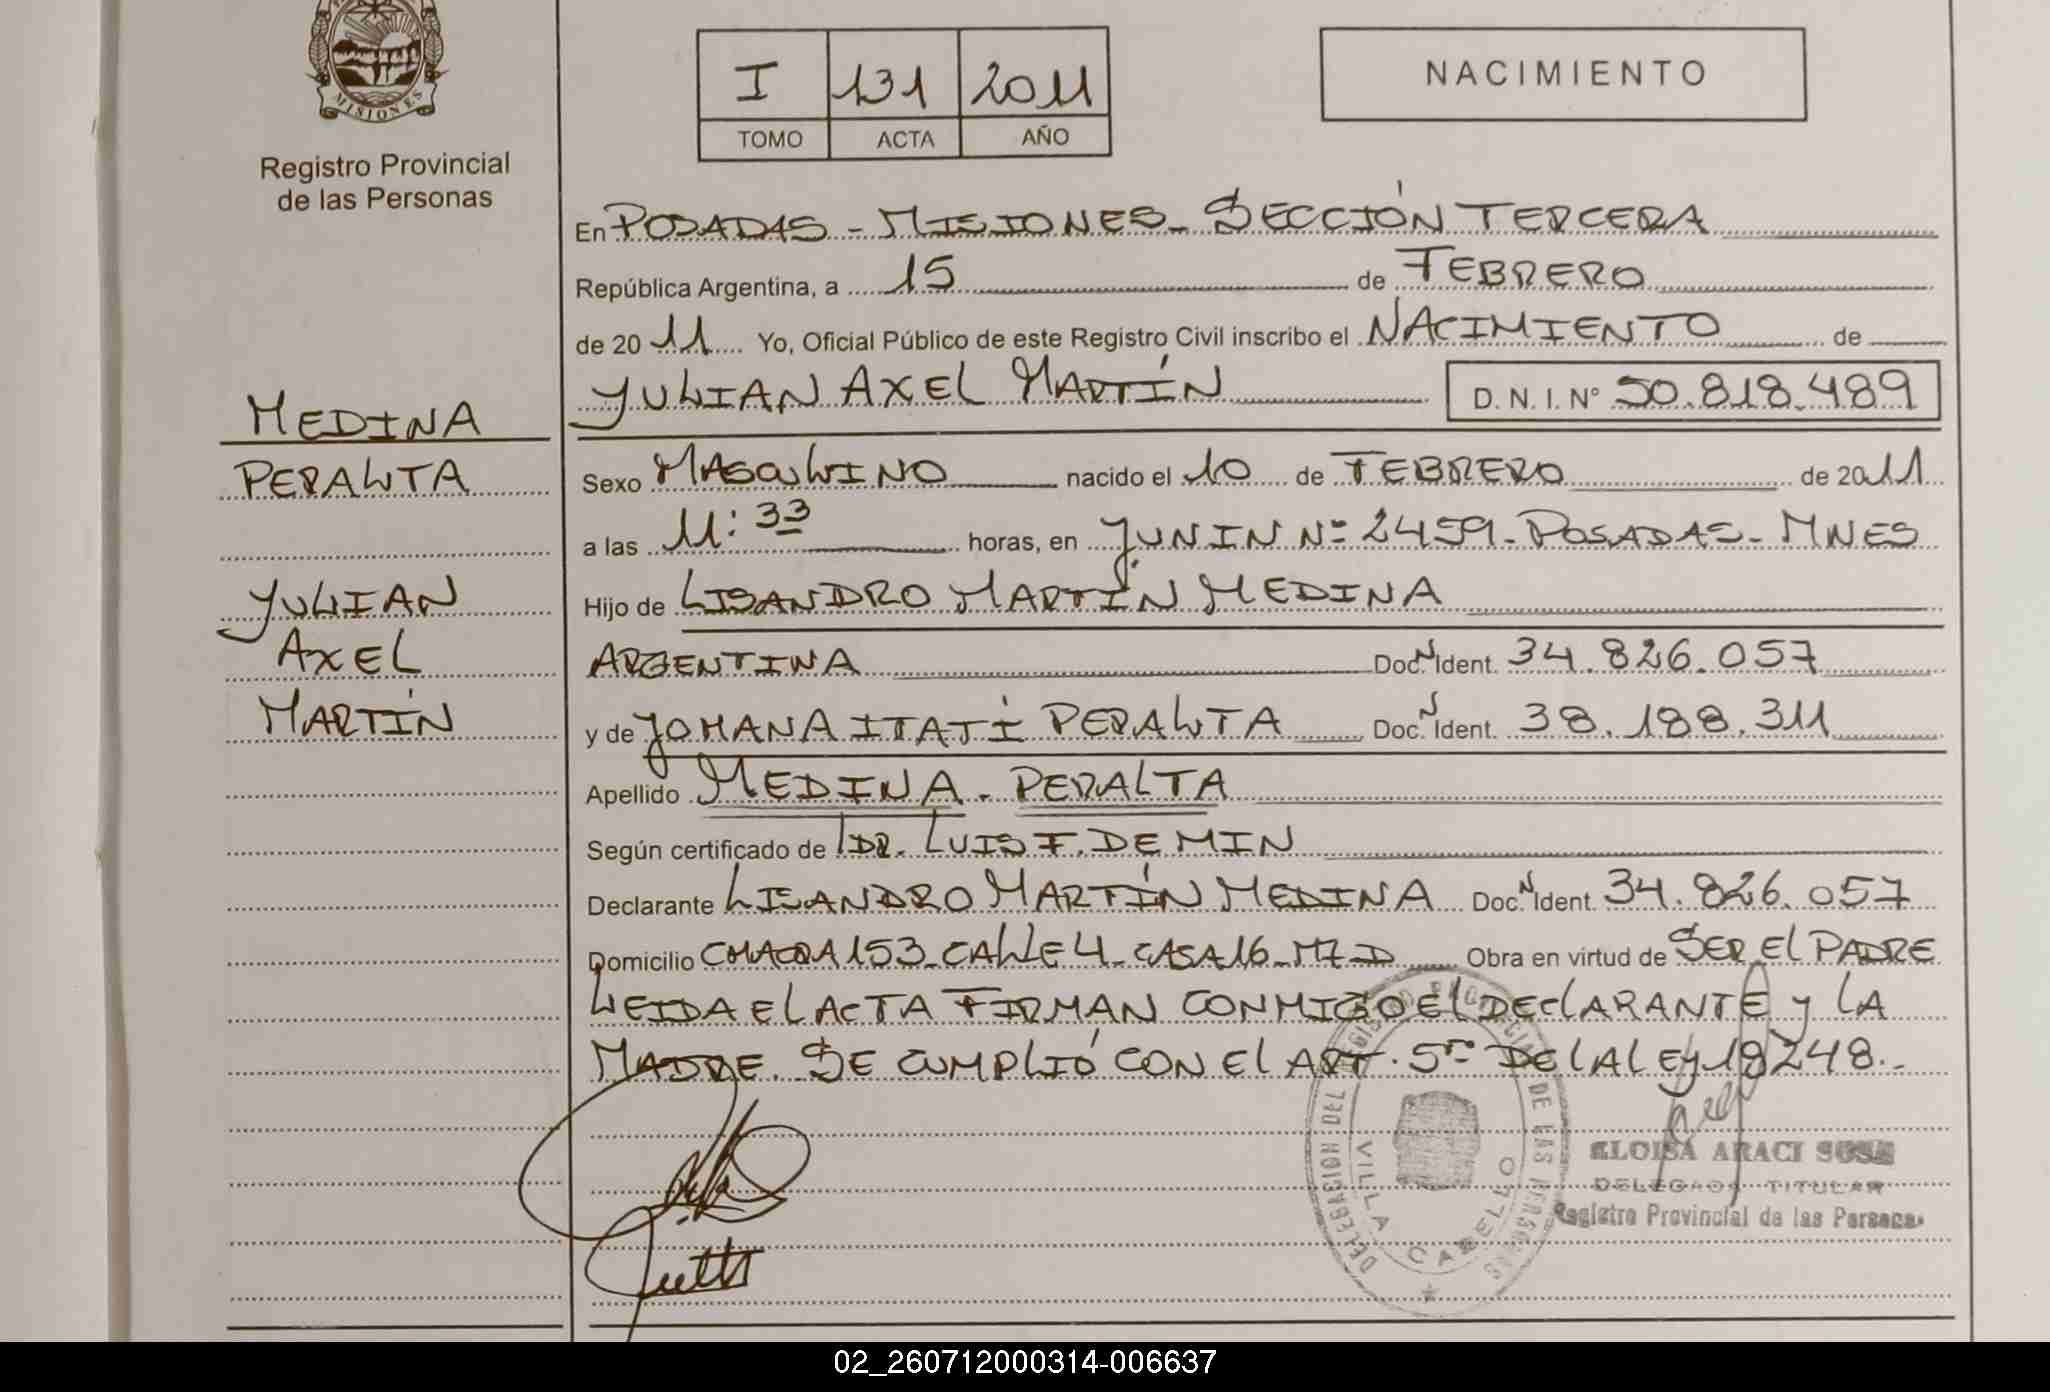 MISIONES
Registro Provincial
de las Personas
I 131 2011
TOMO ACTA AÑO
NACIMIENTO
En POSADAS - MISIONES - SECCIÓN TERCERA
República Argentina, a 15 de FEBRERO
de 2011 Yo, Oficial Público de este Registro Civil inscribo el NACIMIENTO de
YULIAN AXEL MARTÍN D. N. I. N° 50.818.489
MEDINA
PERALTA
YULIAN
AXEL
MARTÍN
Sexo MASCULINO nacido el 10 de FEBRERO de 2011
a las 11:33 horas, en JUNIN Nº 2459 - POSADAS - MNES
Hijo de LISANDRO MARTÍN MEDINA
ARGENTINA Doc. N Ident. 34.826.057
y de YOHANA ITATÍ PERALTA Doc. N Ident. 38.188.311
Apellido MEDINA - PERALTA
Según certificado de DR. LUIS F. DEMIN
Declarante LISANDRO MARTÍN MEDINA Doc. N Ident. 34.826.057
Domicilio CHACRA 153 - CALLE 4 - CASA 16 - MZ D Obra en virtud de SER EL PADRE
LEIDA EL ACTA FIRMAN CONMIGO EL DECLARANTE Y LA
MADRE. SE CUMPLIÓ CON EL ART. 5º DE LA LEY 18248.-
DELEGACION DEL REGISTRO PROVINCIAL DE LAS PERSONAS
VILLA CABELLO
ELOISA ARACI SOSA
DELEGADA TITULAR
Registro Provincial de las Personas
02_260712000314-006637